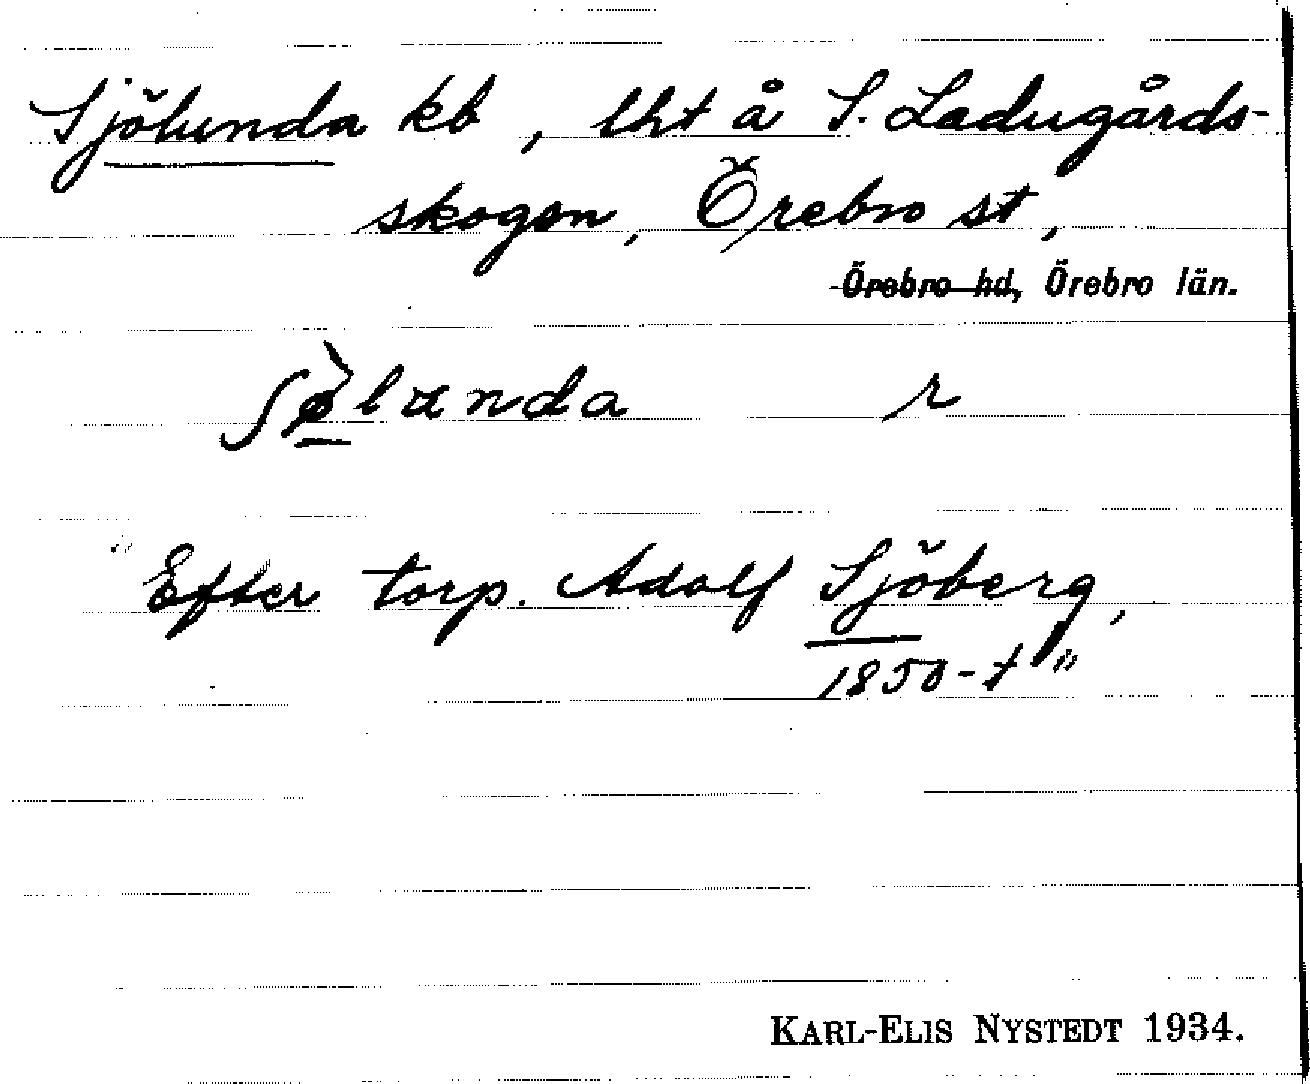 Sjölunda kb, lht å S. Ladugårds-
skogen, Örebro st,
Örebro hd, Örebro län.
ʃø̀lunda r
"Efter torp. Adolf Sjöberg,
1850-t"
KARL-ELIS NYSTEDT 1934.